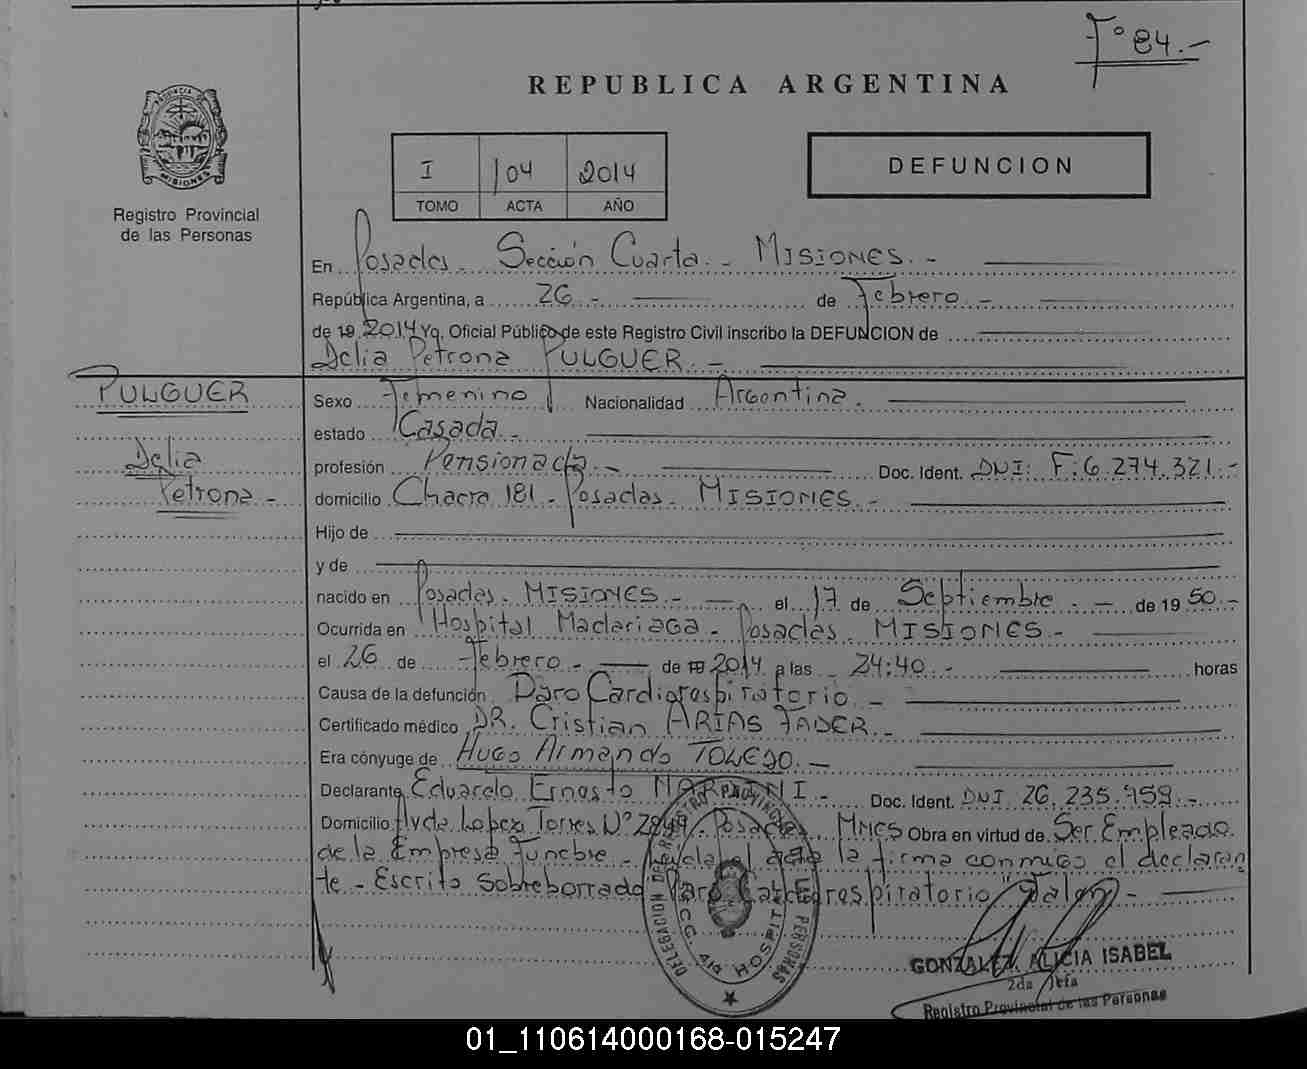 Fº 84.-
REPUBLICA ARGENTINA
PROVINCIA DE MISIONES
Registro Provincial
de las Personas
I 104 2014
TOMO ACTA AÑO
DEFUNCION
En Posadas. Sección Cuarta. - MISIONES. -
República Argentina, a 26 - de Febrero -
de 19 2014 Yo, Oficial Público de este Registro Civil inscribo la DEFUNCION de
Delia Petrona PULGUER. -
PULGUER
Delia
Petrona -
Sexo Femenino Nacionalidad Argentina.
estado Casada -
profesión Pensionada - Doc. Ident. DNI: F: 6.274.321.-
domicilio Chacra 181 - Posadas. MISIONES -
Hijo de
y de
nacido en Posadas. MISIONES. - el 17 de Septiembre. - de 19 50. -
Ocurrida en Hospital Madariaga - Posadas. MISIONES -
el 26 de Febrero - de 19 2014 a las 24:40 - horas
Causa de la defunción Paro Cardiorespiratorio. -
Certificado médico DR. Cristian ARIAS FADER. -
Era cónyuge de Hugo Armando TOLEDO. -
Declarante Eduardo Ernesto MARTINI - Doc. Ident. DNI 26.235.959.-
Domicilio Avda Lopez Torres Nº Posadas MNES Obra en virtud de Ser Empleado
de la Empresa Funebre - Leida el acta la firma conmigo el declaran
te - Escrito Sobreborrado "Paro Cardiorespiratorio" Vale. -
DELEGACION DEL REGISTRO PROVINCIAL DE LAS PERSONAS
HOSPITAL
GONZALEZ, ALICIA ISABEL
2da Jefa
Registro Provincial de las Personas
01_110614000168-015247